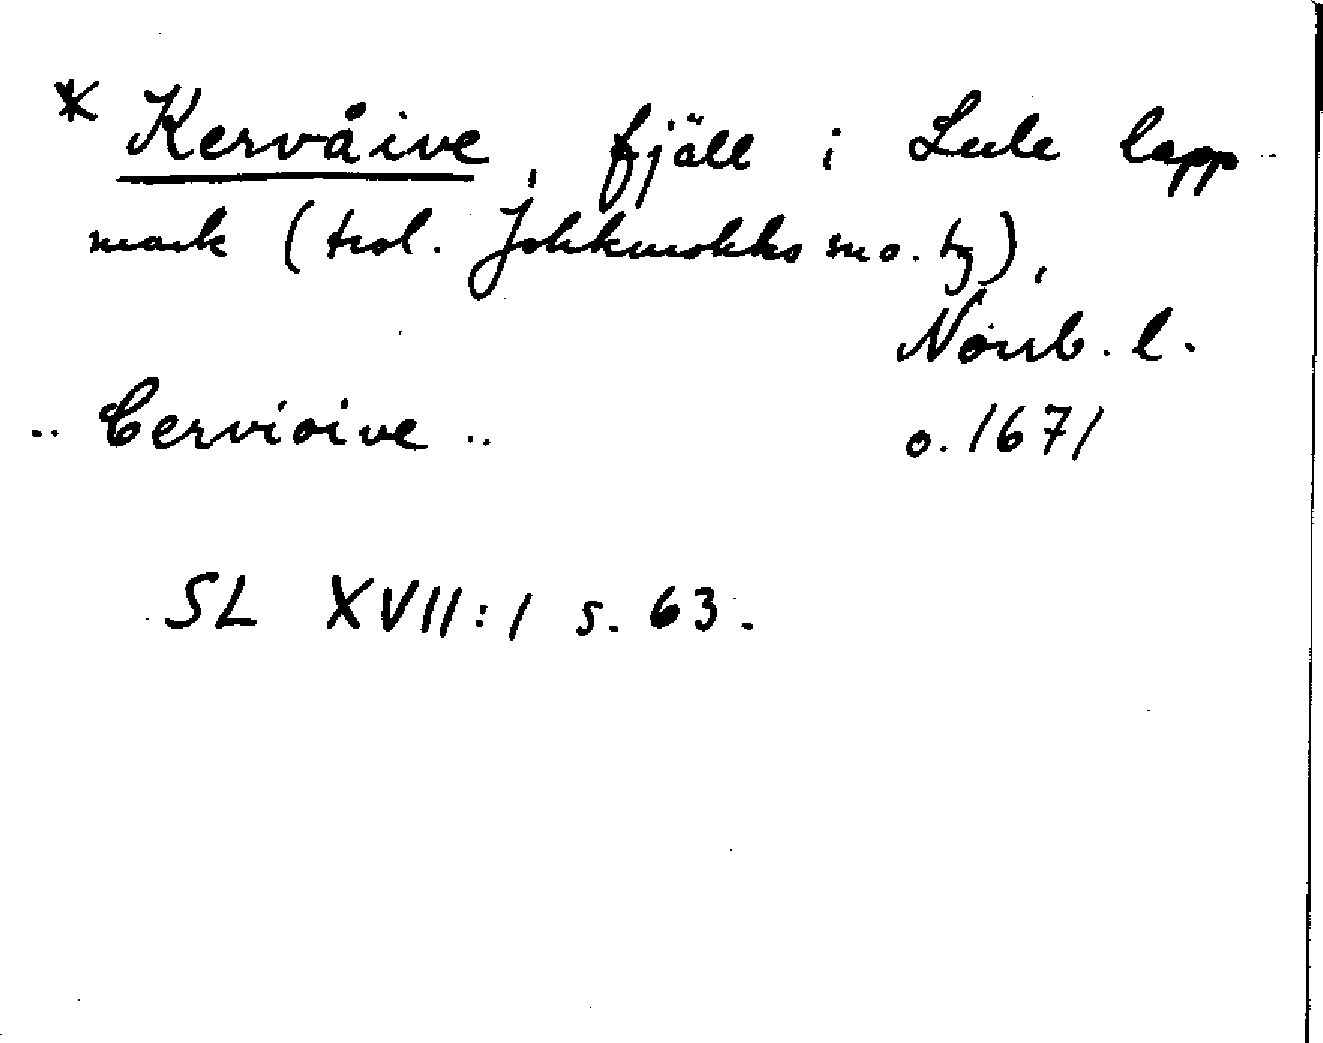 * Kervåive, fjäll i Lule lapp-
mark (trol. Jokkmokks sn o. tg),
Norrb. l.
.. Cervioive .. o. 1671
SL XVII:1 s. 63.